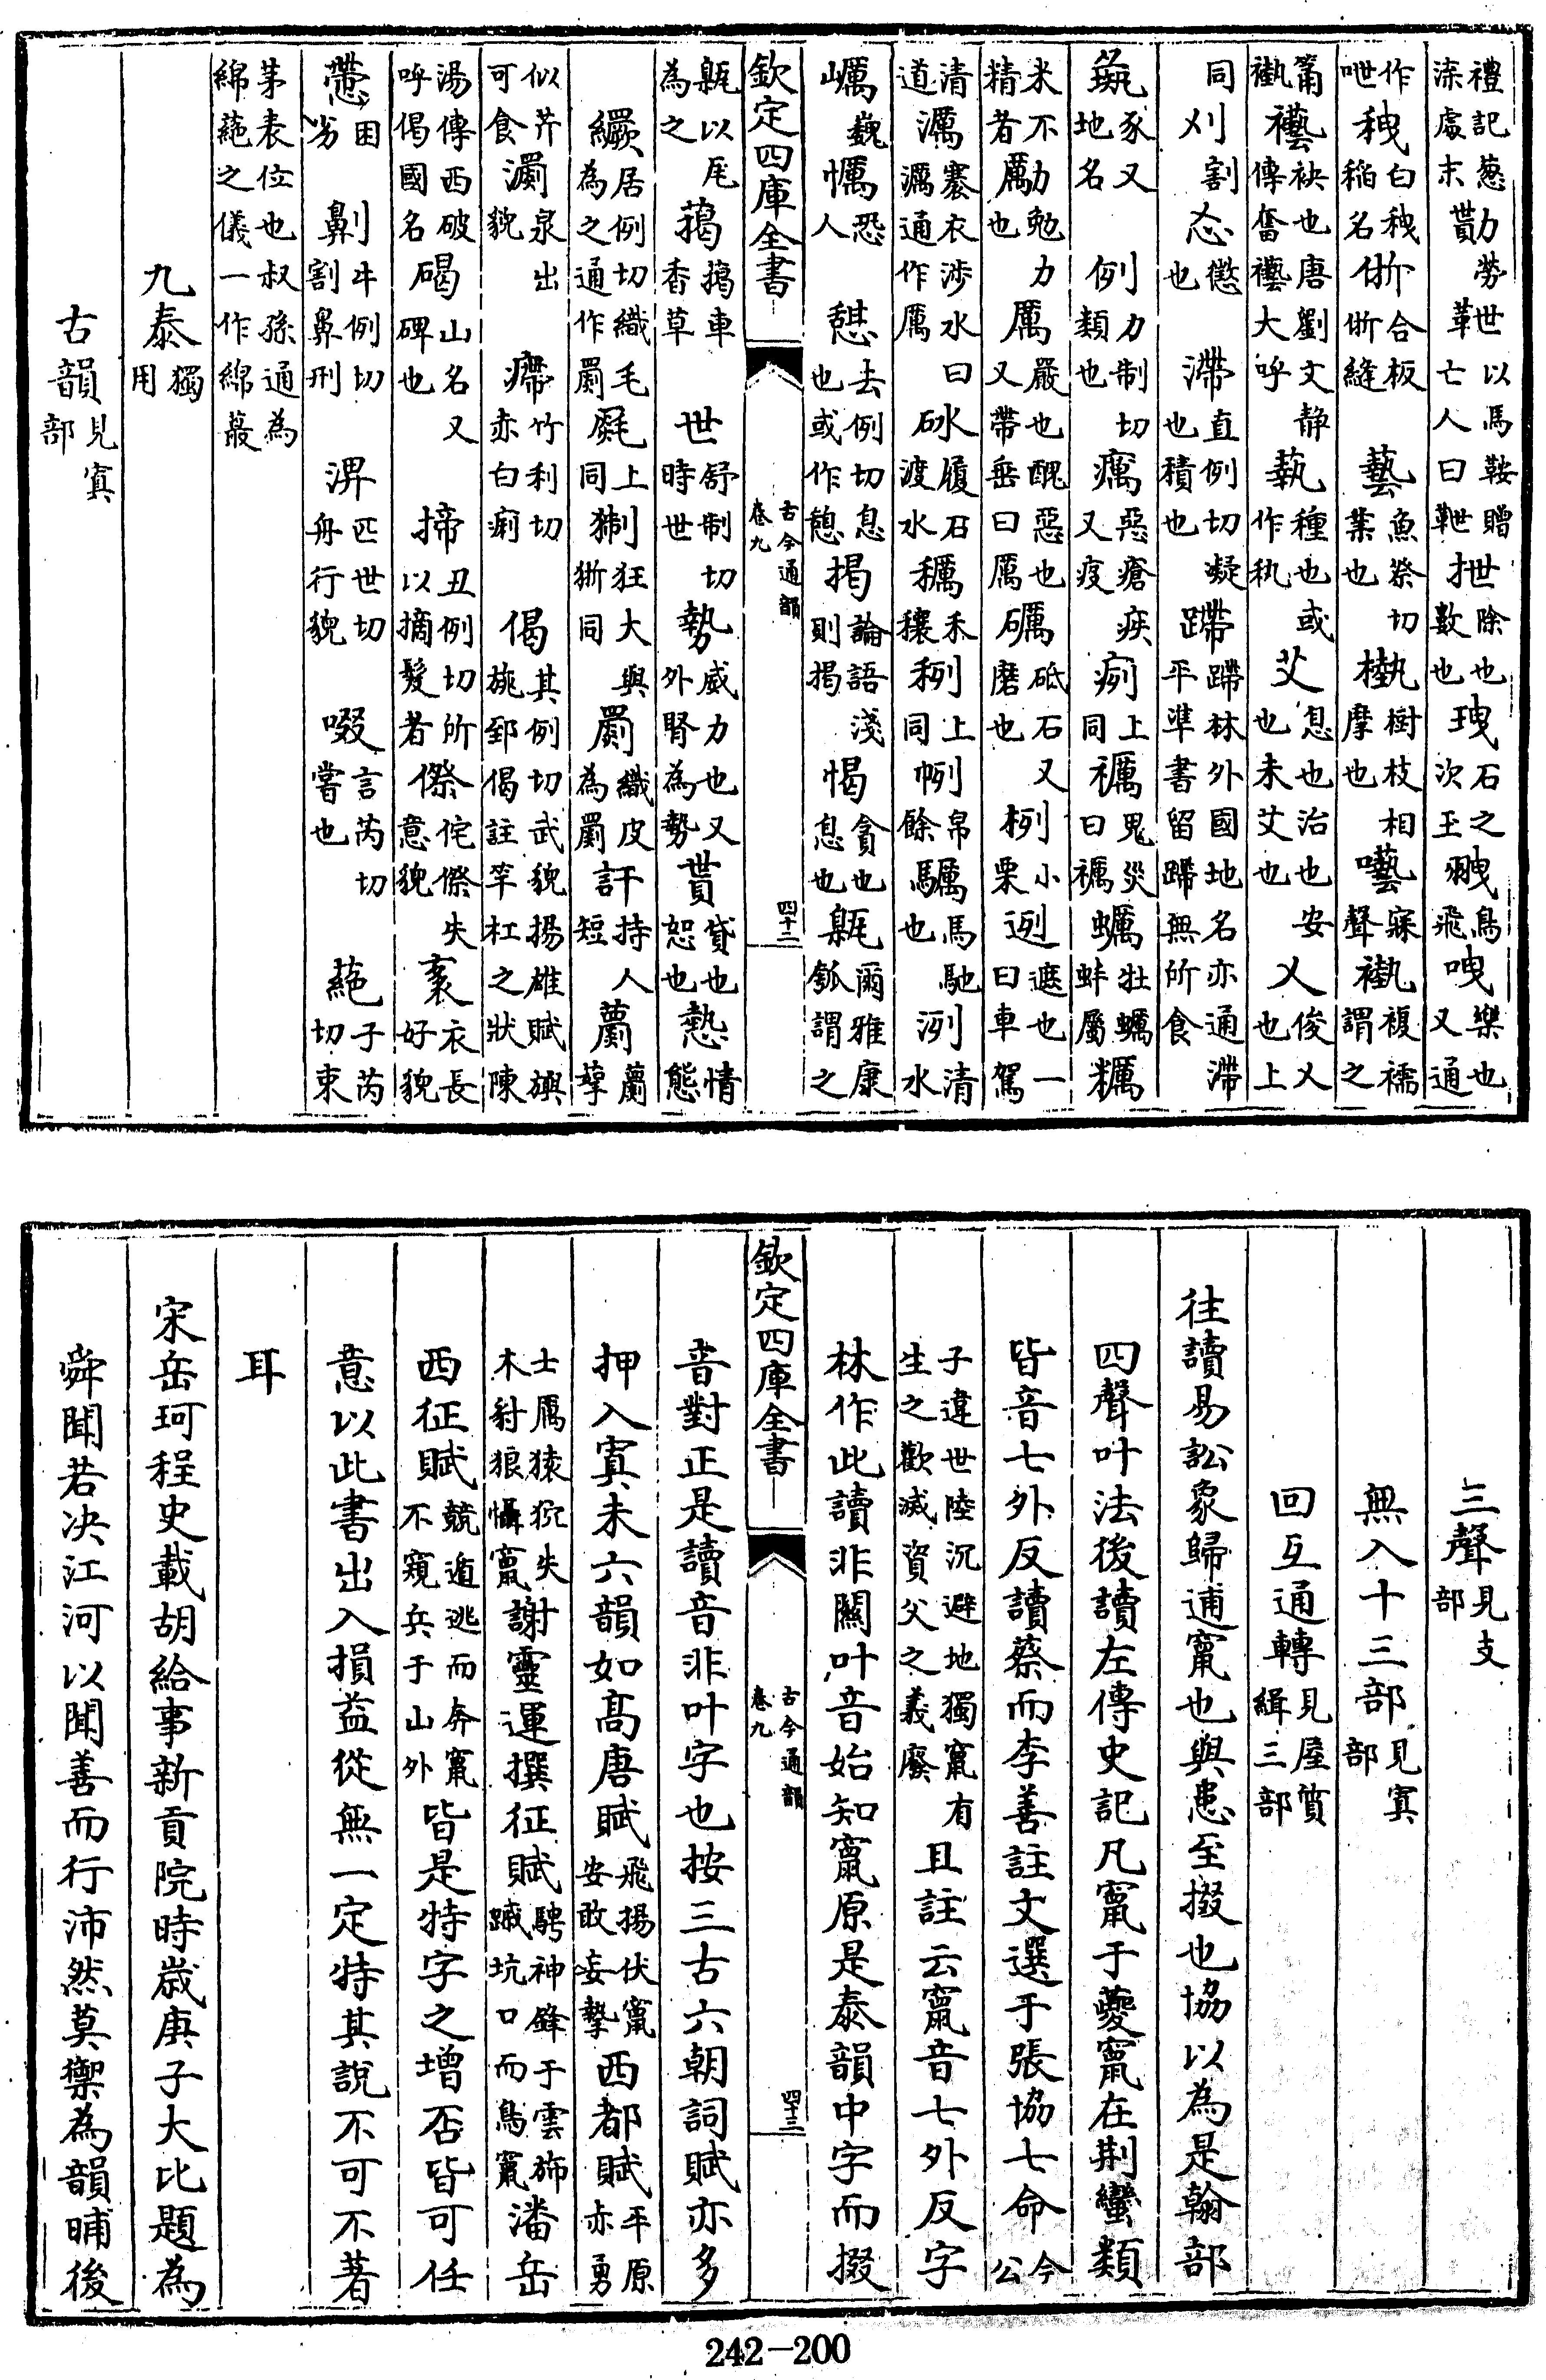 禮記葱㴃處末勩勞𩋰世以馬鞍贈亡人曰靾抴除也數也㻔石之次玉䎈鳥飛呭樂也又通
作呭䄿白䄿稻名㭊合板㭊縫藝魚祭切業也槷樹枝相摩也囈寐聲褹複襦謂之
䈞褹襼袂也唐劉文靜傳奮襼大呼蓺種也或作秇艾息也治也安也未艾也乂俊乂也上
同刈割忍懲也滯直例切凝也積也蹛蹛林外國地名亦通滯平準書留蹛無所食
㒸又地名例力制切類也癘惡瘡疾又疫㾐上同禲鬼災曰禲蠣牡蠣蚌屬糲
米不精者勵勉力也厲嚴也醜惡也又帶垂曰厲礪砥石又磨也栵小栗迾遮也一曰車駕
清道濿褰衣涉水曰濿通作厲砅履石渡水𥣭禾穰䅀上同㤡帛餘䮋馬馳也洌清水
巁巍㦠恐人憇去例切息也或作憩揭論語淺則揭愒貪也息也甈爾雅康瓠謂之
欽定四庫全書 古今通韻 卷九 四十二
甈以瓦為之藒藒車香草世舒制切時世勢威力也又外腎為勢貰貸也恕也㷅情態
繝居例切織毛為之通作罽㲯上同猘狂犬與狾同罽織皮為罽訐持人短薊薊草
似芹可食瀱泉出貌㿃竹利切赤白痢偈其例切武貌揚雄賦旟旐郅偈註竿杠之狀陳
湯傳西破呼偈國名碣山名又碑也揥丑例切所以摘髮者傺侘傺失意貌袲衣長好貌
㦅困劣劓牛例切割鼻刑淠匹世切舟行貌啜言芮切嘗也蕝子芮切束
茅表位也叔孫通為綿蕝之儀一作綿蕞
九泰獨用
古韻見寘部
三聲見支部
無入十三部見寘部
回互通轉見屋質緝三部
往讀易訟象歸逋竄也與患至掇也協以為是翰部
四聲叶法後讀左傳史記凡竄于夔竄在荆蠻類
皆音七外反讀蔡而李善註文選于張協七命今公
子違世陸沉避地獨竄有生之歡滅資父之義廢且註云竄音七外反字
林作此讀非關叶音始知竄原是泰韻中字而掇
欽定四庫全書 古今通韻 卷九 四十三
音對正是讀音非叶字也按三古六朝詞賦亦多
押入寘未六韻如高唐賦飛揚伏竄安敢妄摯西都賦平原赤勇
士厲猿狖失木豺狼懾竄謝靈運撰征賦騁神鋒于雲斾蹴坑口而鳥竄潘岳
西征賦競遁逃而奔竄不窺兵于山外皆是特字之增否皆可任
意以此書出入損益從無一定特其說不可不著
耳
宋岳珂程史載胡給事新貢院時歲庚子大比題為
舜聞若决江河以聞善而行沛然莫禦為韻晡後
242-200